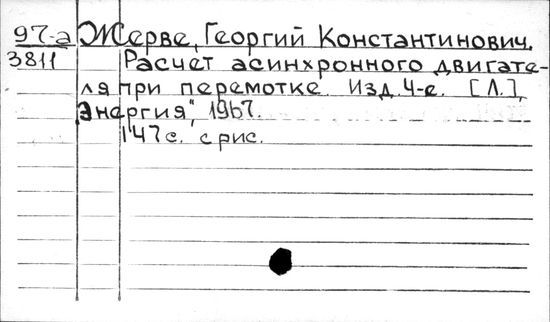 97-а Жерве, Георгий Константинович.
3811 Расчет асинхронного двигате-
ля при перемотке. Изд. 4-е. [Л.],
"Энергия", 1967.
147 с. с рис.